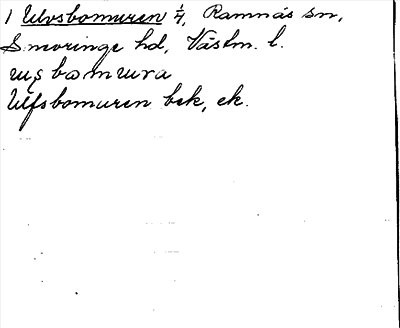 1 Ulvsbomuren 1/4, Ramnäs sn,
Snevringe hd, Västm. l.
ulfsbomuren bek, ek.